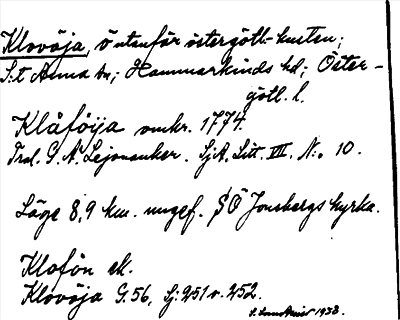 Klovöja, ö utanför östergötl-kusten;
S:t Anna sn; Hammarkinds hd; Öster-
götl. l.
Klåföija omkr. 1774.
Trol. G. A. Lejonanker. SjA. Litt. VII. N:o 10.
Läge 8,9 km. ungef. SÖ Jonsbergs kyrka.
Klofön ek.
Klovöja G. 56, Sj: 251 v. 252.
1938.